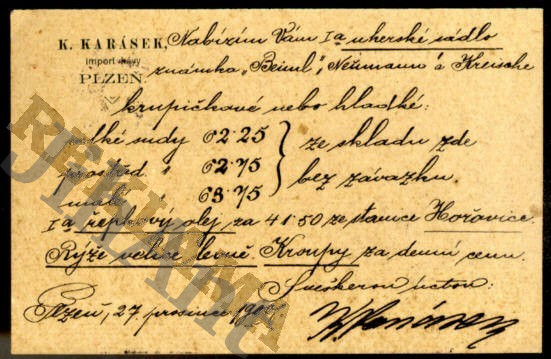 K. KARÁSEK,
import kávy
PLZEŇ.
Nabízím Vám Ia uherské sádlo
známka „Beiml“, Neümann a Kreische
krupičkové nebo hladké:
velké sudy 62·25
prostřed. " 62·75
malé " 63·75
ze skladu zde
bez závazku
Ia řepkový olej za 41·50 ze stanice Hořovice.
Rýže velice levně, Kroupy za denní cenu.
Veškerou úctou:
Plzeň, 27. prosince
REKLAMA